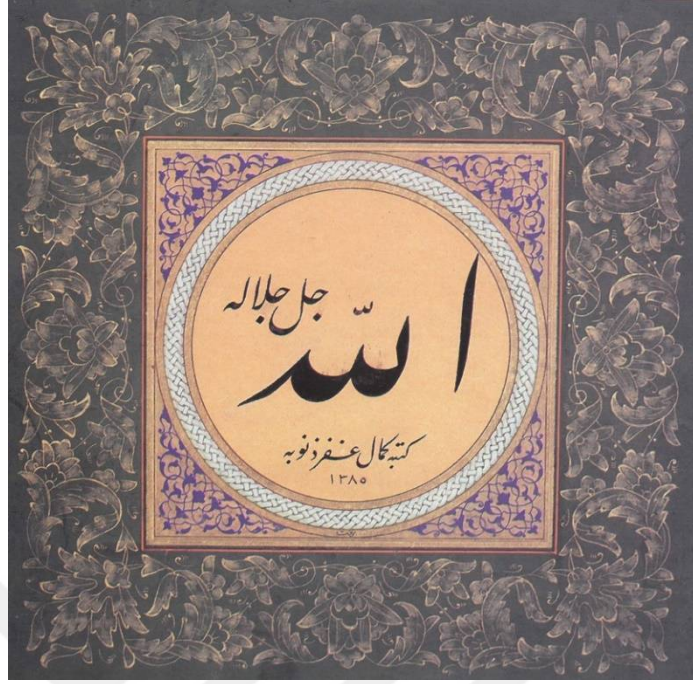 الله
جل جلاله
كتبه كمال غفر ذنوبه
١٣٨٥